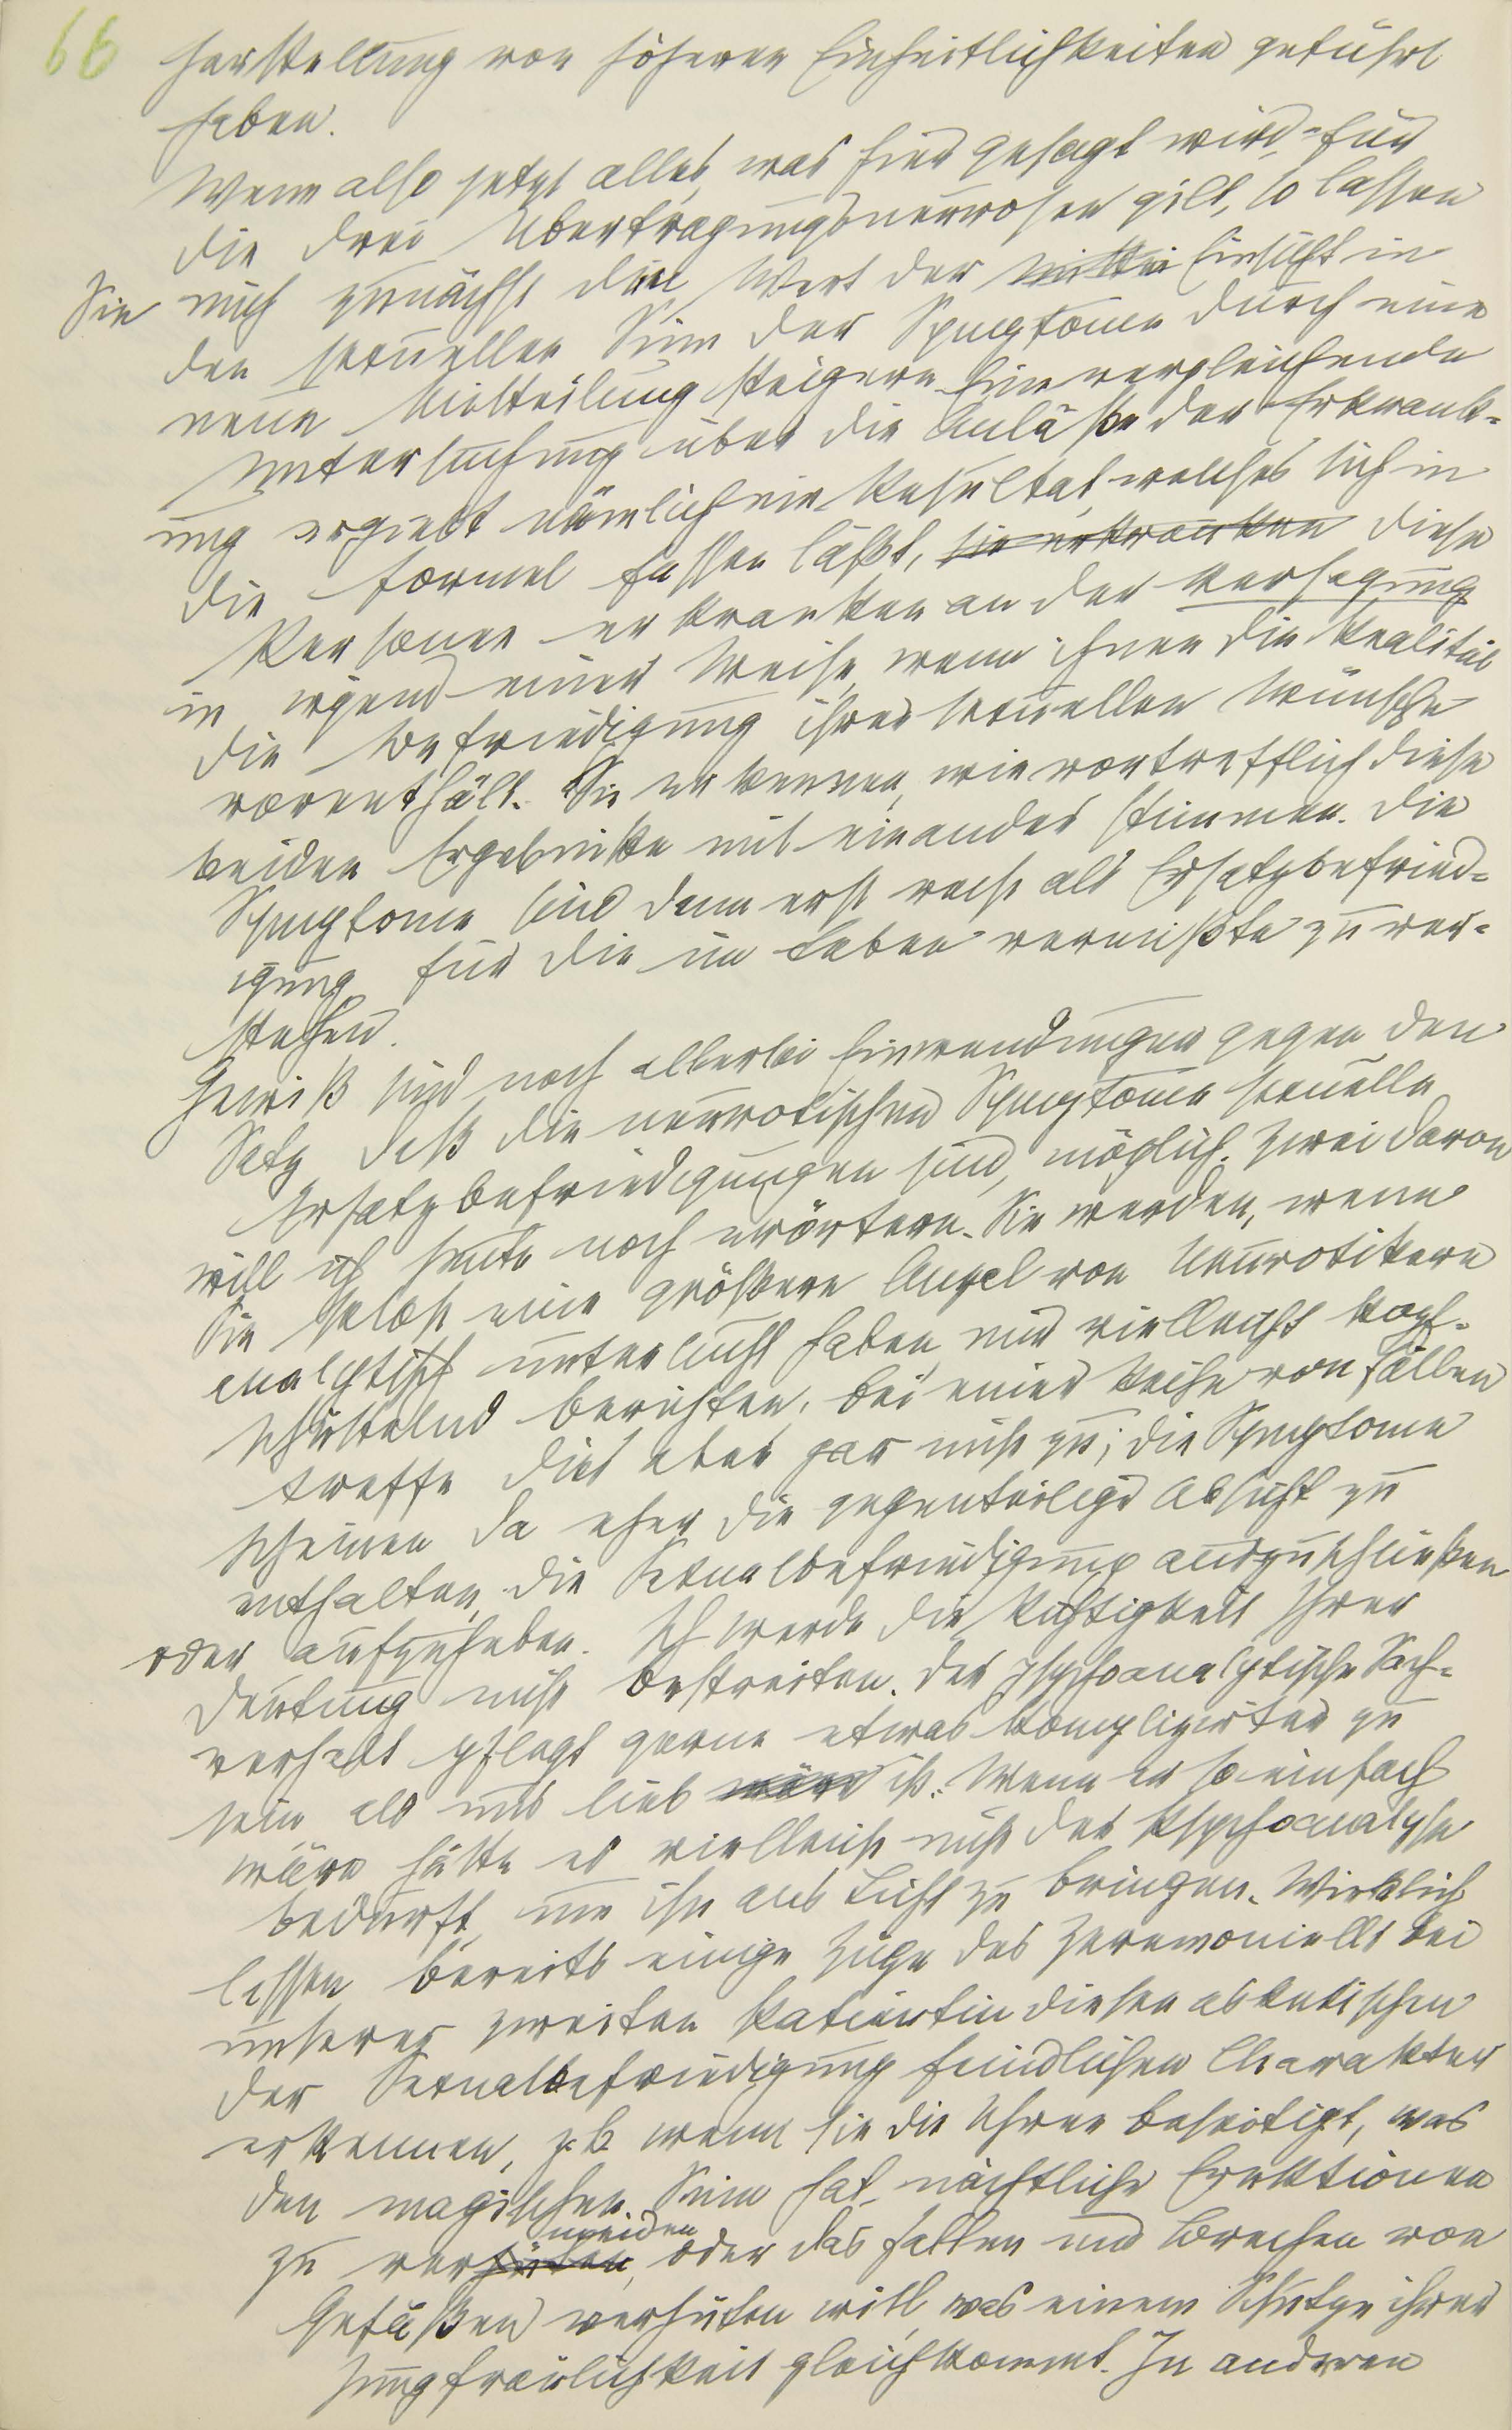 66
Herstellung von höheren Einheitlichkeiten geführt
haben.
Wenn also jetzt alles, was hier gesagt wird für
die drei Übertragungsneurosen gilt, so lassen
Sie mich zunächst den Wert der Mittei Einsicht in
den sexuellen Sinn der Symptome durch eine
neue Mitteilung steigern. Eine vergleichende
Untersuchung über die Anläße der Erkrank-
ung ergiebt nämlich ein Resultat, welches sich in
die Formel fassen läßt, sie erkranken diese
Personen erkranken an der Versagung
in irgend einer Weise, wenn ihnen die Realität
die Befriedigung ihrer sexuellen Wünsche
vorenthält. Sie erkennen, wie vortrefflich diese
beiden Ergebniße mit einander stimmen. Die
Symptome sind dann erst recht als Ersatzbefried-
igung für die im Leben vermißte zu ver-
stehen.
Gewiß sind noch allerlei Einwendungen gegen den
Satz, daß die neurotischen Symptome sexuelle
Ersatzbefriedigungen sind, möglich. Zwei davon
will ich heute noch erörtern. Sie werden, wenn
Sie selbst eine größere Anzal von Neurotikern
analytisch untersucht haben, mir vielleicht kopf-
schüttelnd berichten, bei einer Reihe von Fällen
treffe dies aber gar nicht zu; die Symptome
scheinen da eher die gegenteilige Absicht zu
enthalten, die Sexualbefriedigung auszuschließen
oder aufzuheben. Ich werde die Richtigkeit Ihrer
Deutung nicht bestreiten. Der psychoanalytische Sach-
verhalt pflegt gerne etwas komplizirter zu
sein als uns lieb wäre ist. Wenn er so einfach
wäre hätte es vielleicht nicht der Psychoanalyse
bedurft, um ihn ans Licht zu bringen. Wirklich
lassen bereits einige Züge des Zeremoniells bei
unserer zweiten Patientin diesen asketischen
der Sexualbefriedigung feindlichen Charakter
erkennen, z. B. wenn sie die Uhren beseitigt, was
den magischen Sinn hat, nächtliche Erektionen
zu verhüten, meiden oder das Fallen und Brechen von
Gefäßen verhüten will, was einem Schutze ihrer
Jungfräulichkeit gleichkommt. In anderen